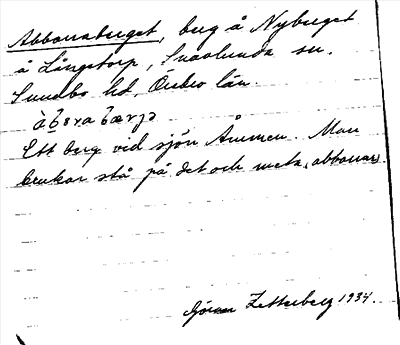 Abborraberget, berg å Nyberget
å Långetorp, Snavlunda sn.
Sundbo hd, Örebro län.
Ett berg vid sjön Åmmen. Man
brukar stå på det och meta (abborrar).
Göran Zetterberg 1934.